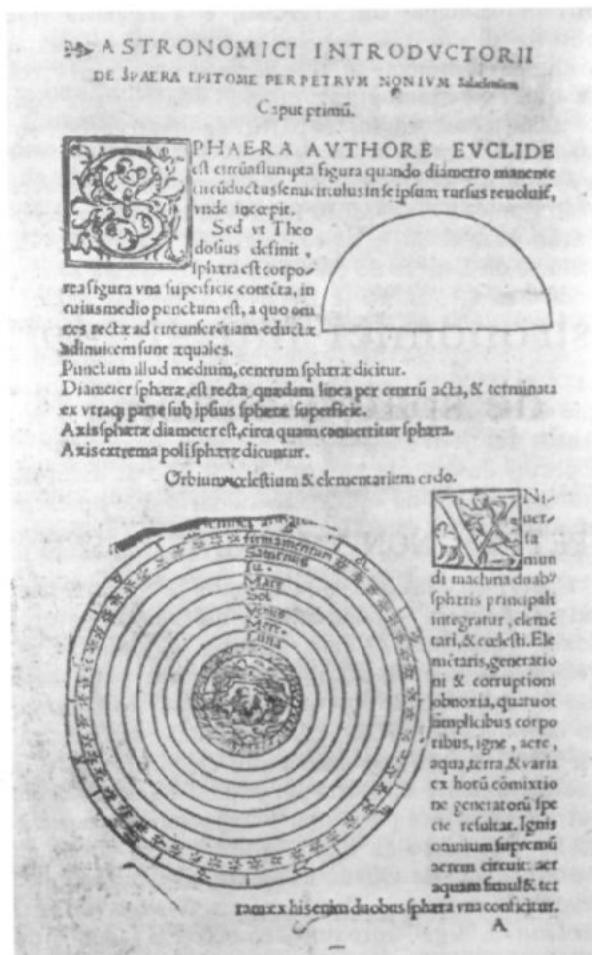 ASTRONOMICI INTRODVCTORII
DE SPAERA EPITOME PER PETRVM NONIVM Salaciensem
Caput primũ.
PHAERA AVTHORE EVCLIDE
est circũassumpta figura quando diametro manente
circũductus semicirculus in se ipsum rursus reuoluit,
vnde incepit.
Sed vt Theo
dosius definit
sphæra est corpo-
rea figura vna superficie contẽta, in
cuius medio punctum est, a quo om
nes rectæ ad circunferẽtiam eductæ
adinuicem sunt æquales.
Punctum illud medium, centrum sphæræ dicitur.
Diameter sphæræ, est recta quædam linea per centrũ acta, & terminata
ex vtraq; parte sub ipsius spheræ superficie.
Axis sphæræ diameter est, circa quam conuertitur sphæra.
Axis extrema poli sphæræ dicuntur.
Orbium cœlestium & elementarium ordo.
firmamentum
Saturnus
Iu.
Mars
Sol
Venus
Merc.
Luna
VNi-
uer-
sa
mun
di machina duabꝰ
spheris principali
integratur, elemẽ
tari, & cœlesti. Ele
mẽtaris, generatio
ni & corruptioni
obnoxia, quatuor
simplicibus corpo
ribus, igne, aere,
aqua, terra & varia
ex horũ cõmixtio
ne generatorũ spe
cie resultat. Ignis
omnium supremũ
aerem circuit: aer
aquam simul & ter
ram: ex his enim duobus sphæra vna conficitur.
A